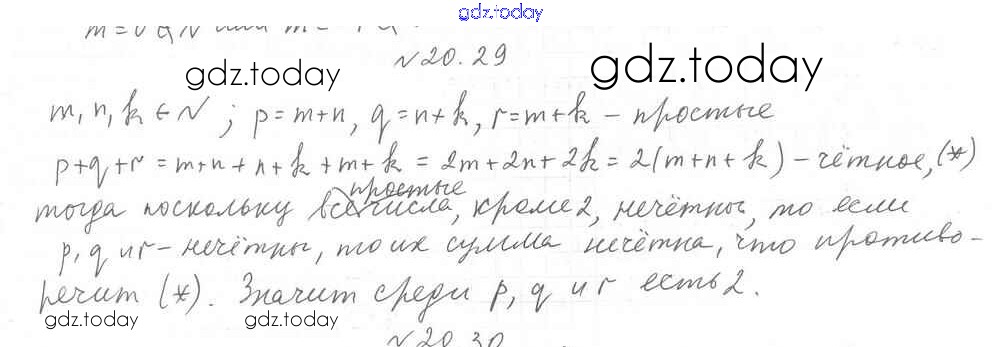 gdz.today
№20.29
gdz.today gdz.today
m, n, k ∈ N; p=m+n, q=n+k, r=m+k – простые
p+q+r = m+n+n+k+m+k = 2m+2n+2k = 2(m+n+k) – чётное, (*)
тогда поскольку все простые числа, кроме 2, нечётны, то если
p, q и r – нечётны, то их сумма нечётна, что противо-
речит (*). Значит среди p, q и r есть 2.
gdz.today gdz.today
№20.30